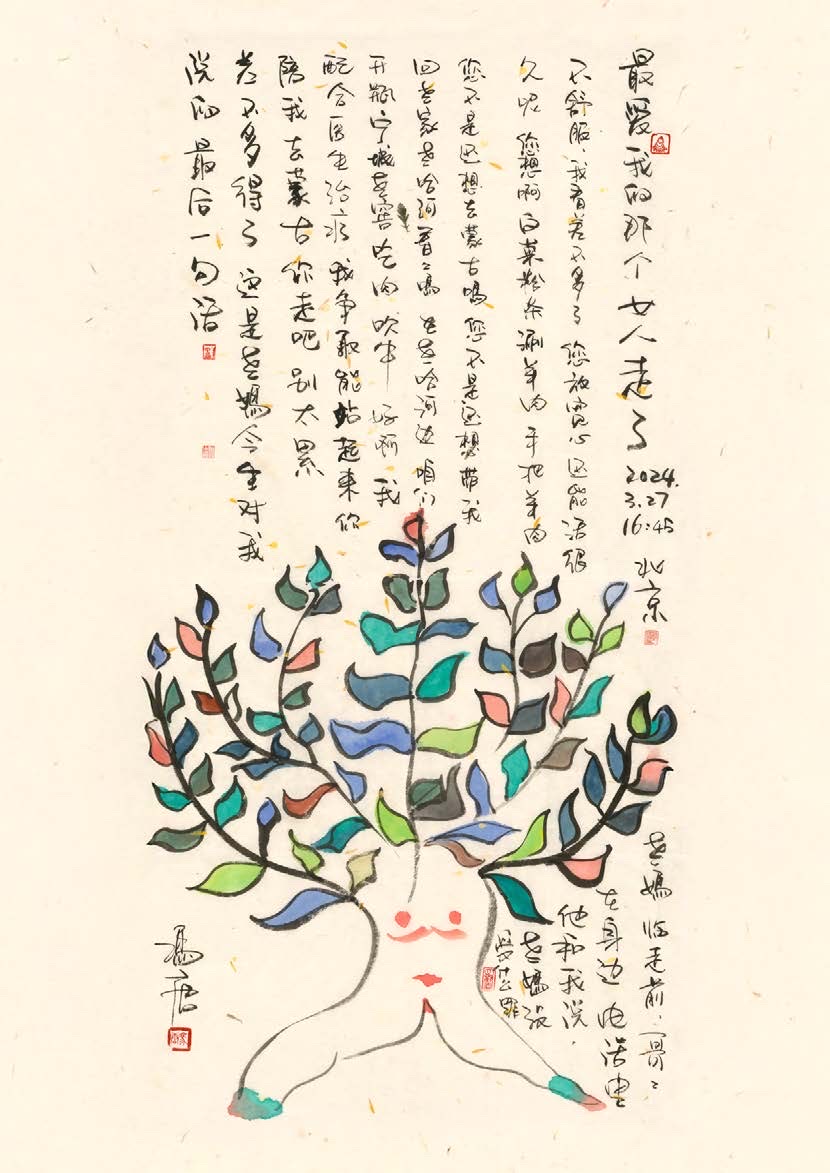 最爱我的那个女人走了
2024.
3.27
16:45
北京
不舒服 我看差不多了 您放宽心 还能活很
久呢 您想啊 白菜粉条涮羊肉 手把羊肉
您不是还想去蒙古吗 您不是还想带我
回老家老哈河看看吗 老哈河边 咱们
开瓶宁城老窖 吃肉 吹牛 好啊 我
配合医生治疗 我争取能站起来 你
陪我去蒙古 你走吧 别太累
差不多得了 这是老妈今生对我
说的最后一句话
老妈临走前,哥〻
在身边 电话里
他和我说,
老妈没
受什么罪
冯唐